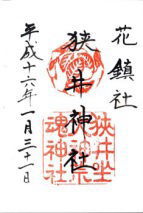 花鎮社
狭井神社
平成十六年一月三十一日
狭井坐
神社
魂神社